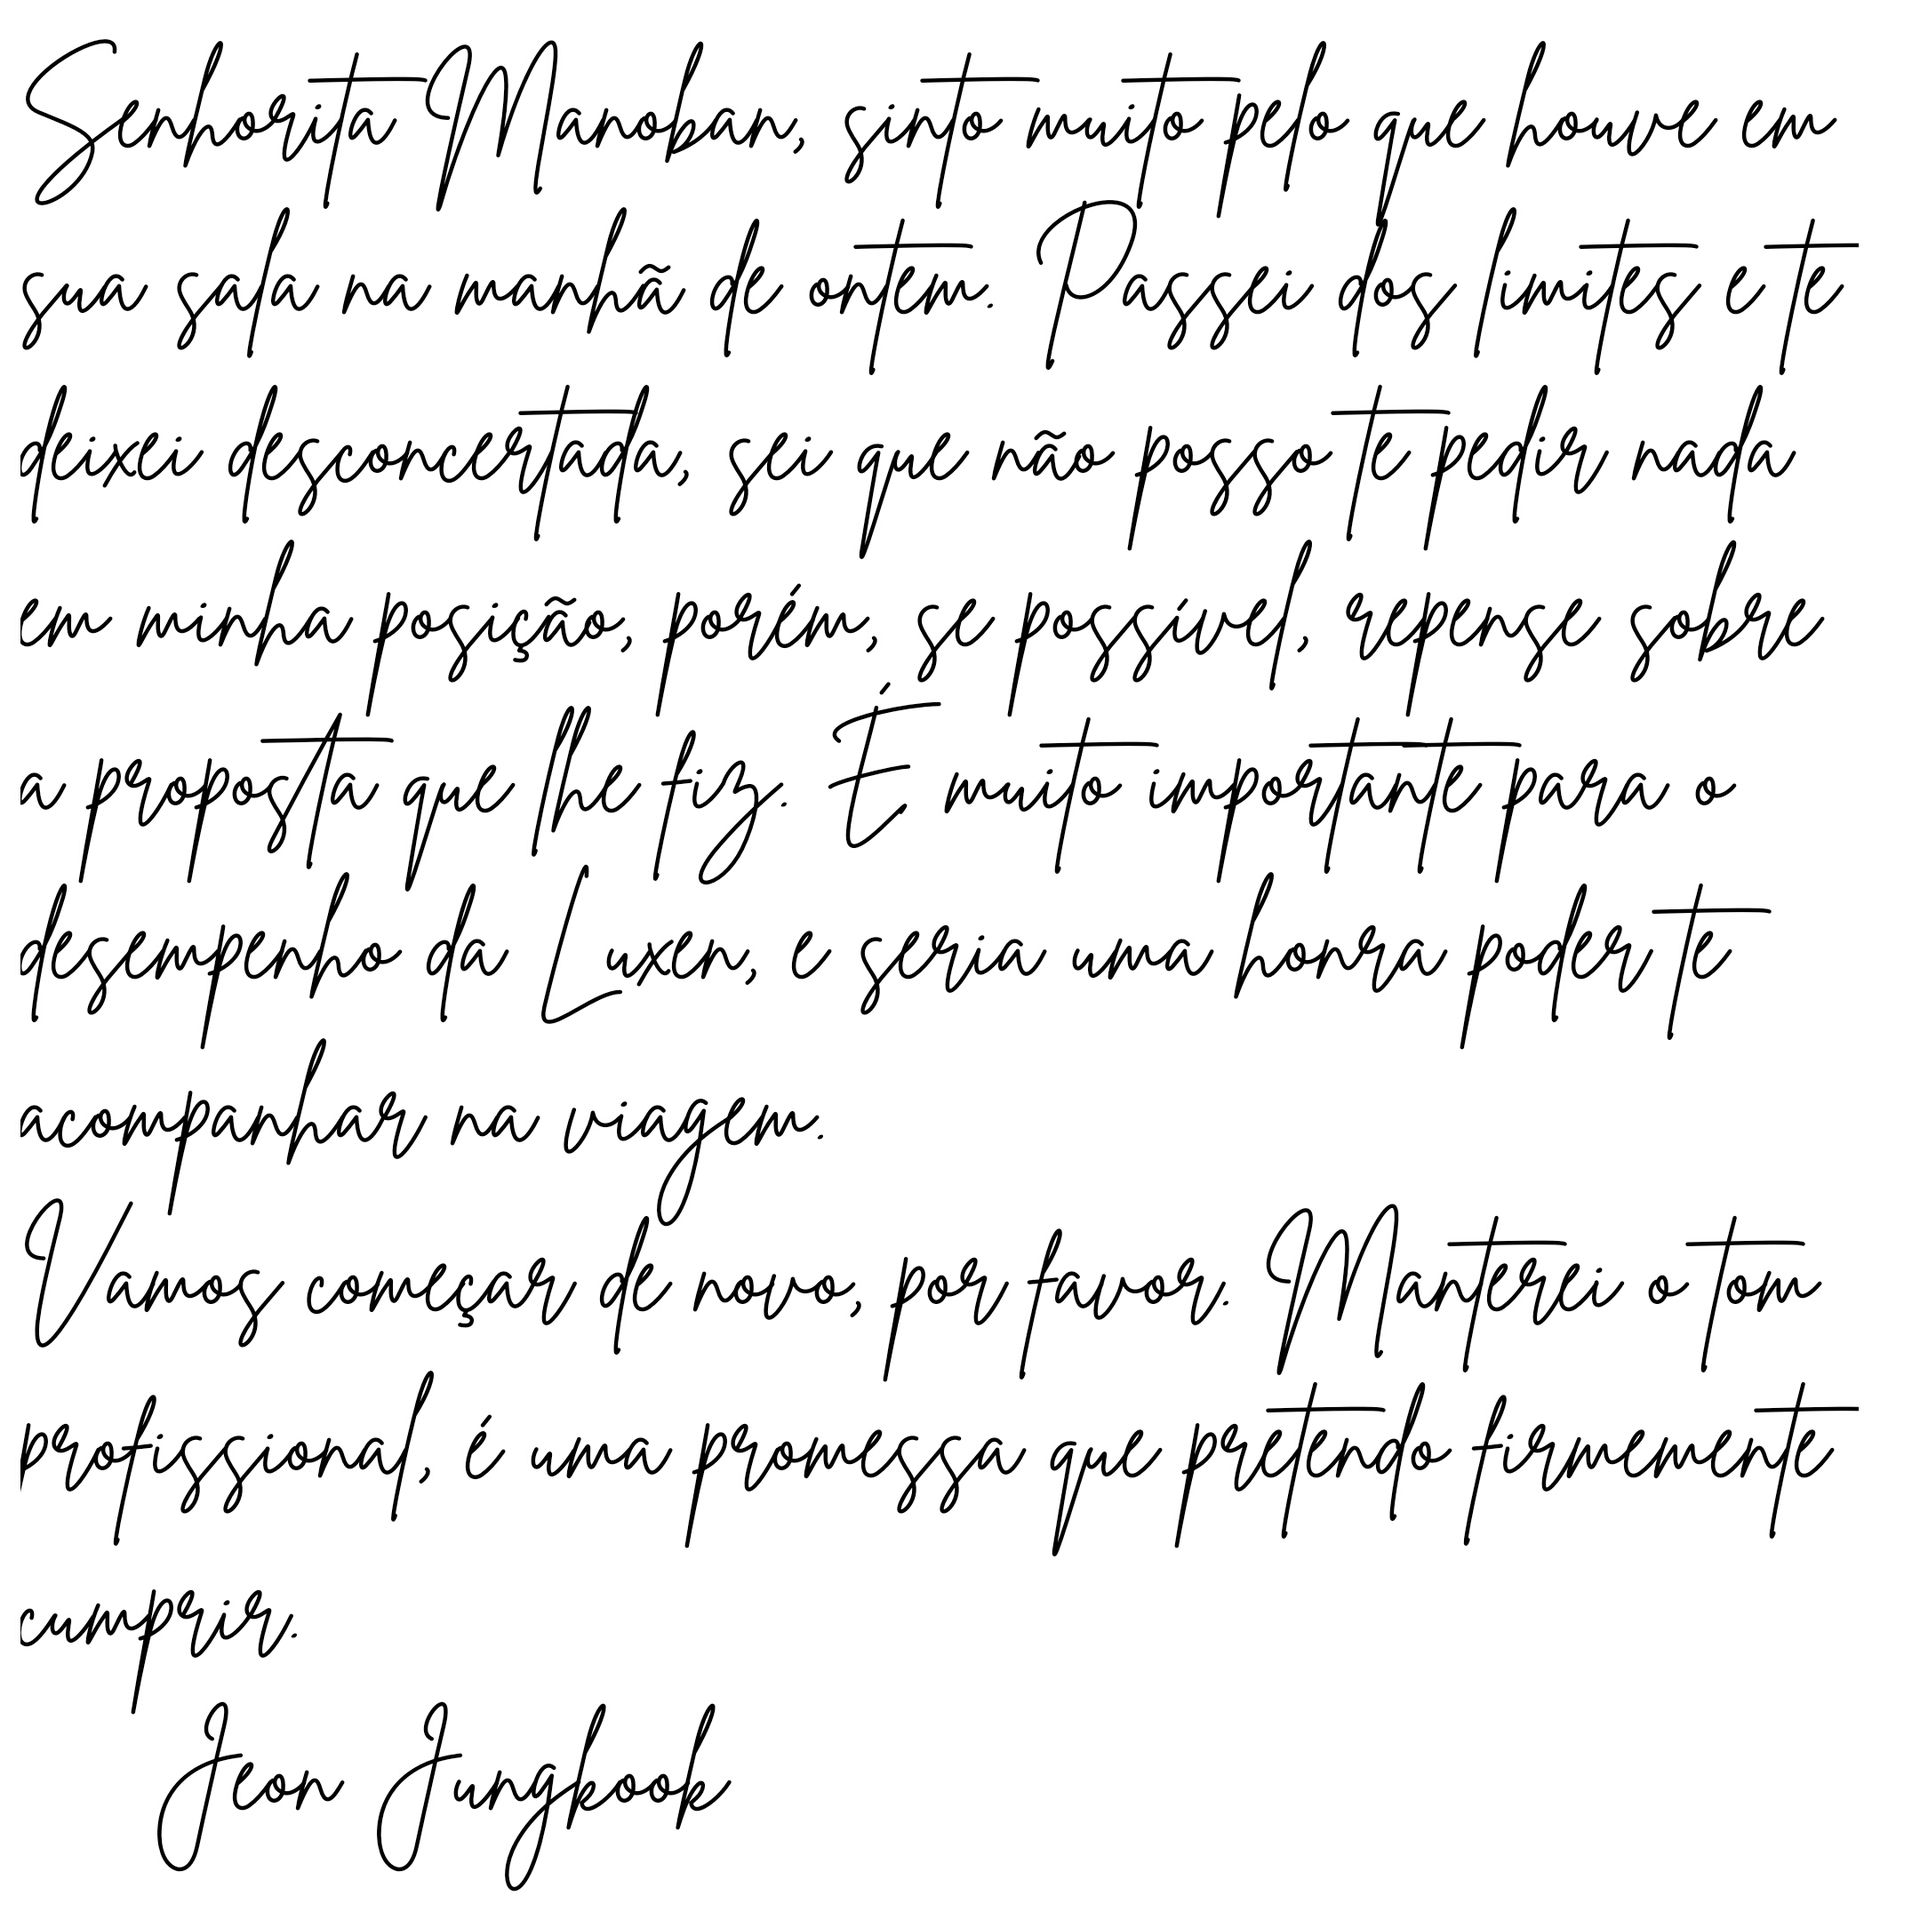 Senhorita Manoban, sinto muito pelo que houve em
sua sala na manhã de ontem. Passei dos limites e te
deixei desconcertada, sei que não posso te pedir nada
em minha posição, porém, se possível, repense sobre
a proposta que lhe fiz. É muito importante para o
desempenho da Luxen, e seria uma honra poder te
acompanhar na viagem.
Vamos começar de novo, por favor. Manterei o tom
profissional, é uma promessa que pretendo firmemente
cumprir.
Jeon Jungkook